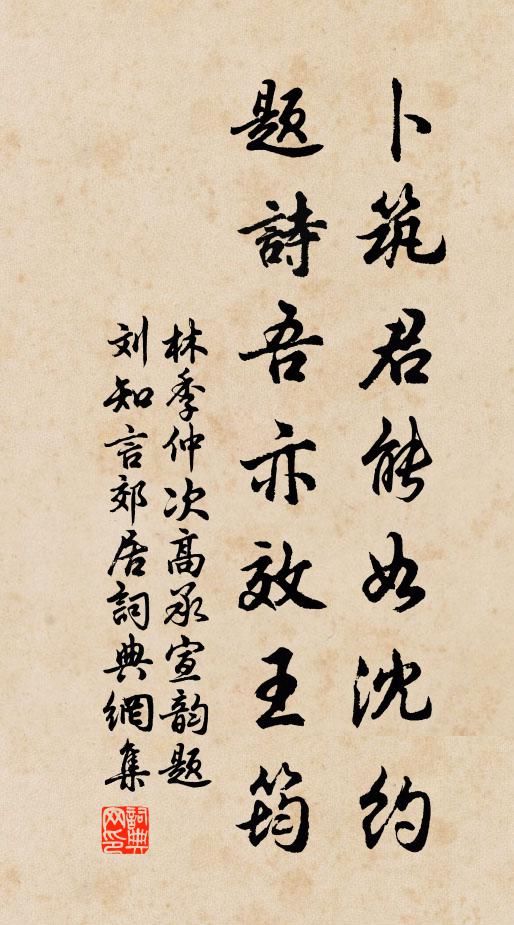 卜筑君能如沈约
题詩吾亦效王筠
林季仲次高承宣韵题
刘知言郊居詞典網集
詞典网印